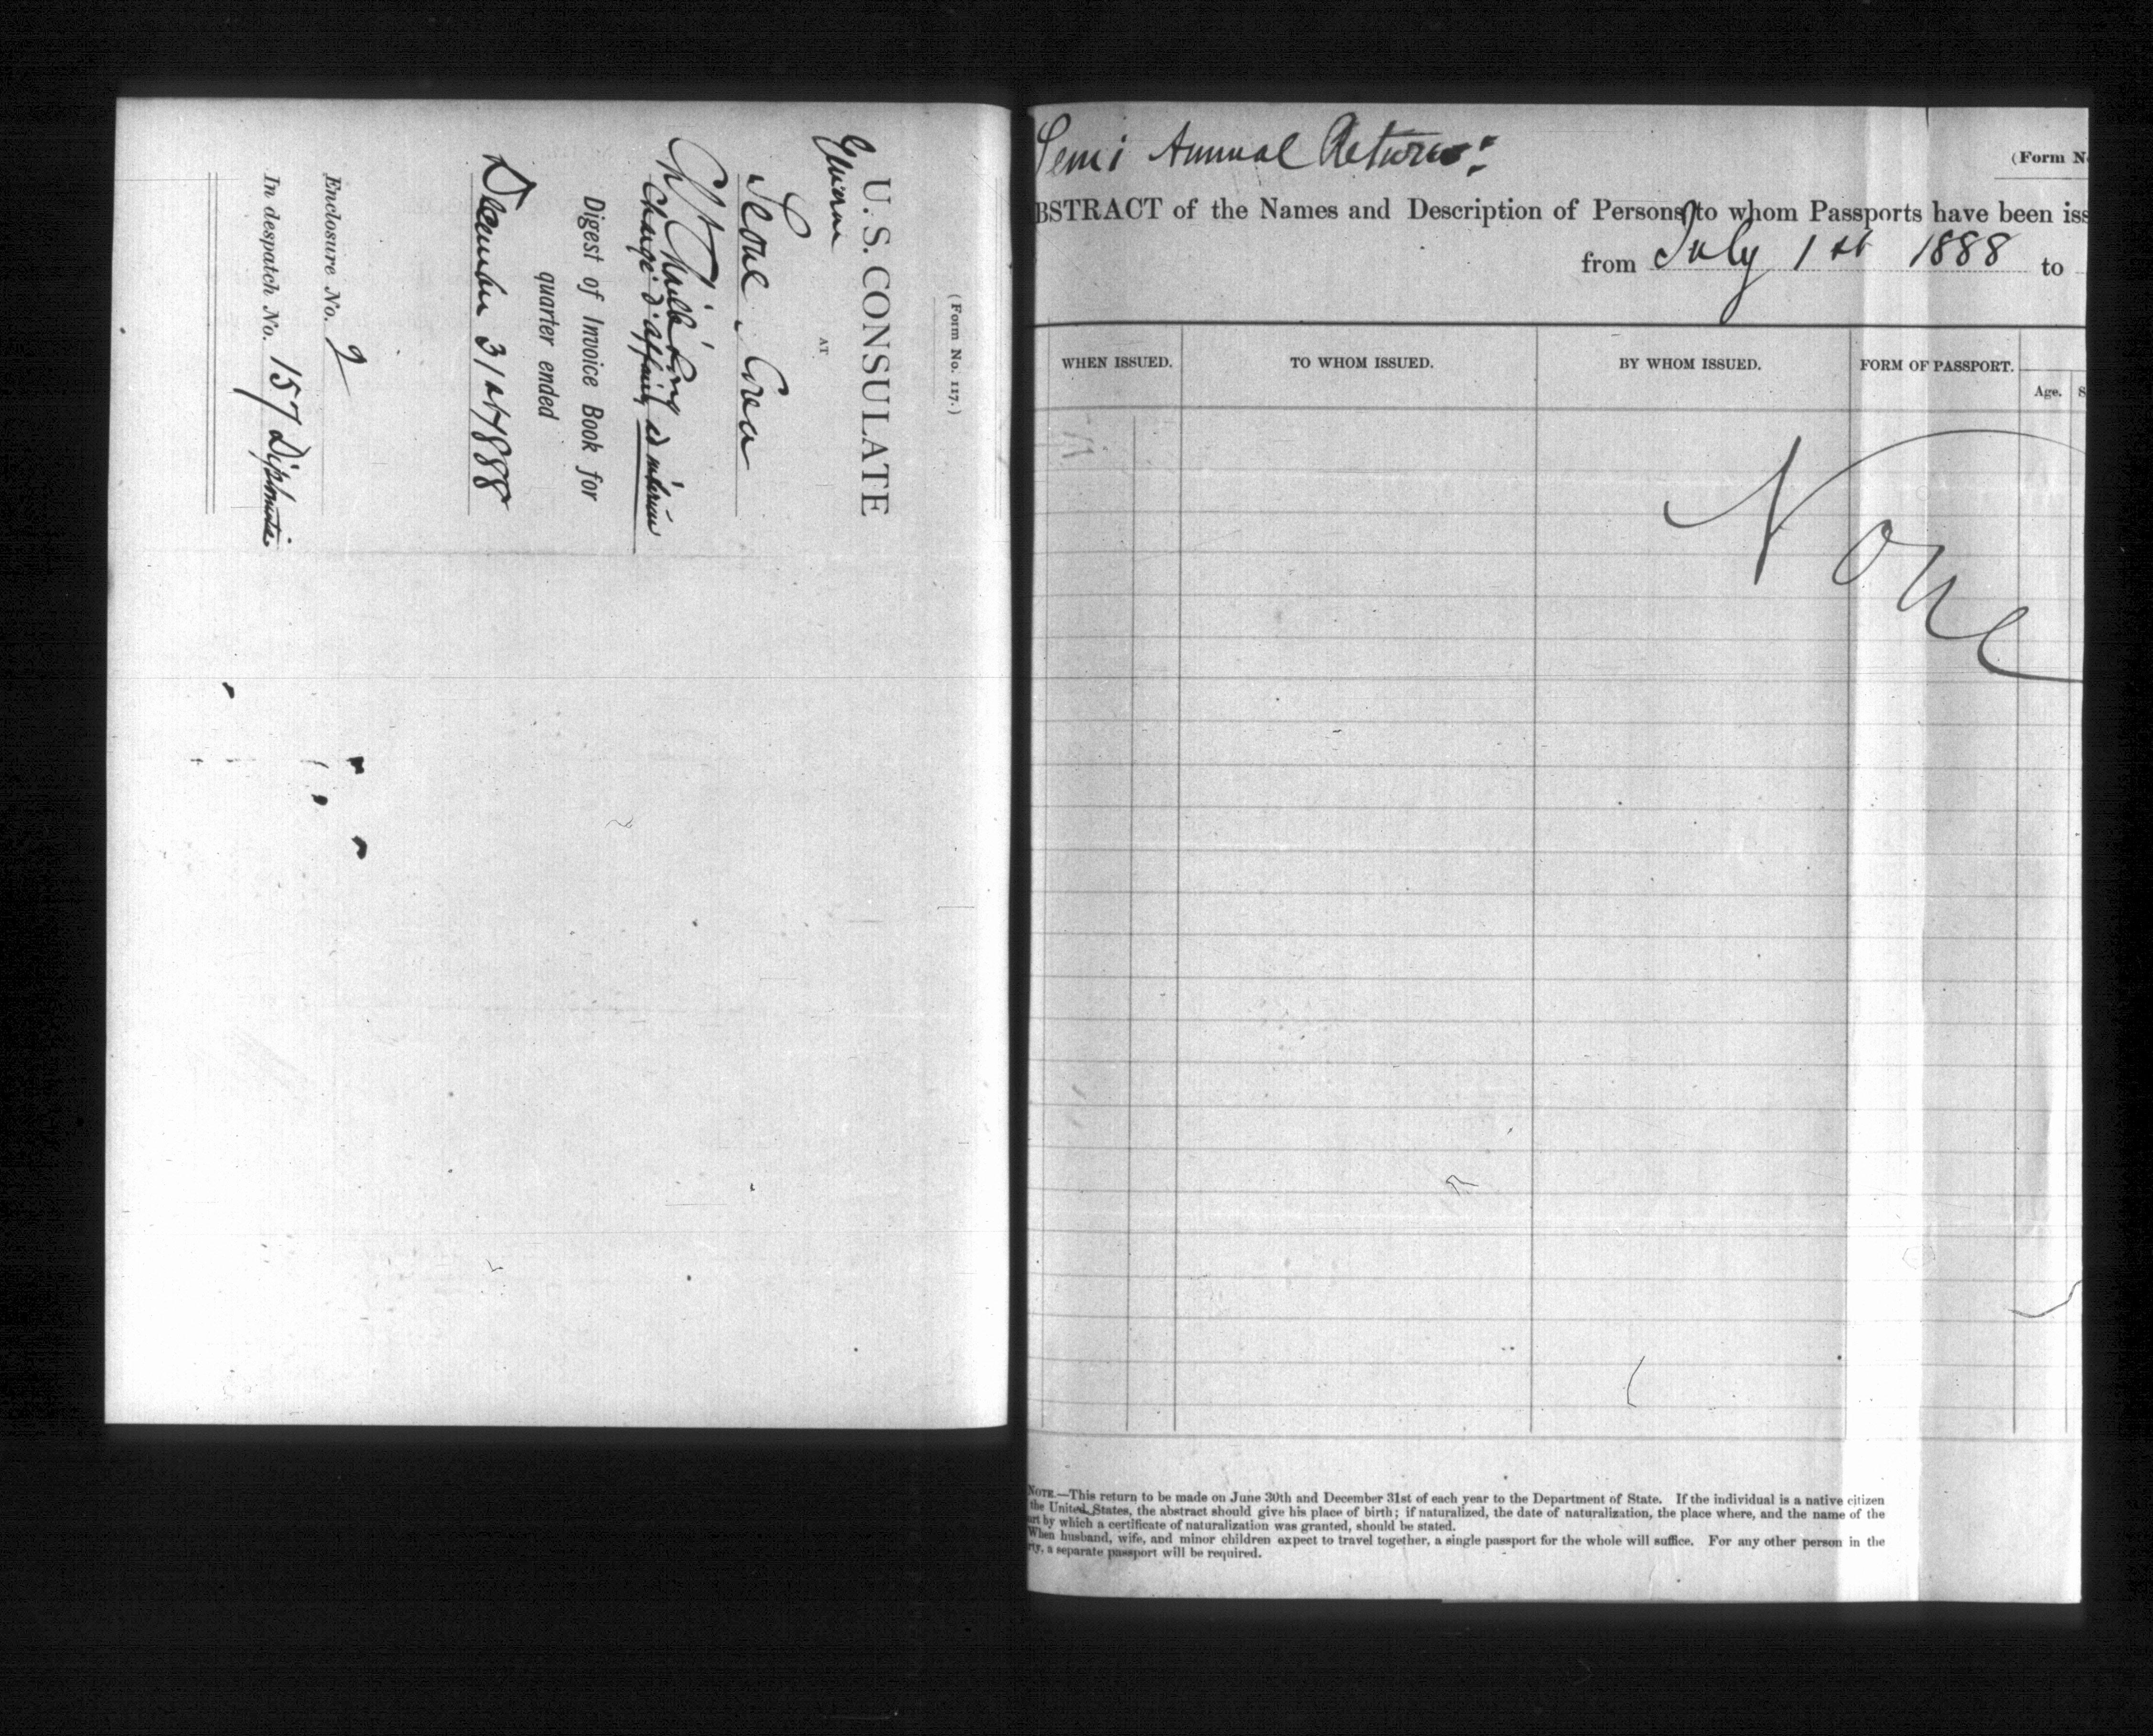 (Form No. 117.)
U. S. CONSULATE
General
AT
Seoul, Corea
Chaillé-Long
Chargé d'affaires ad interim
Digest of Invoice Book for
quarter ended
December 31st 1888
Enclosure No. 2
In despatch No. 157 Diplomatic
Semi Annual Returns:
(Form N
BSTRACT of the Names and Description of Persons to whom Passports have been iss
from July 1st 1888 to
WHEN ISSUED. TO WHOM ISSUED. BY WHOM ISSUED. FORM OF PASSPORT.
Age. S
None
NOTE.—This return to be made on June 30th and December 31st of each year to the Department of State. If the individual is a native citizen
the United States, the abstract should give his place of birth; if naturalized, the date of naturalization, the place where, and the name of the
rt by which a certificate of naturalization was granted, should be stated.
When husband, wife, and minor children expect to travel together, a single passport for the whole will suffice. For any other person in the
rty, a separate passport will be required.